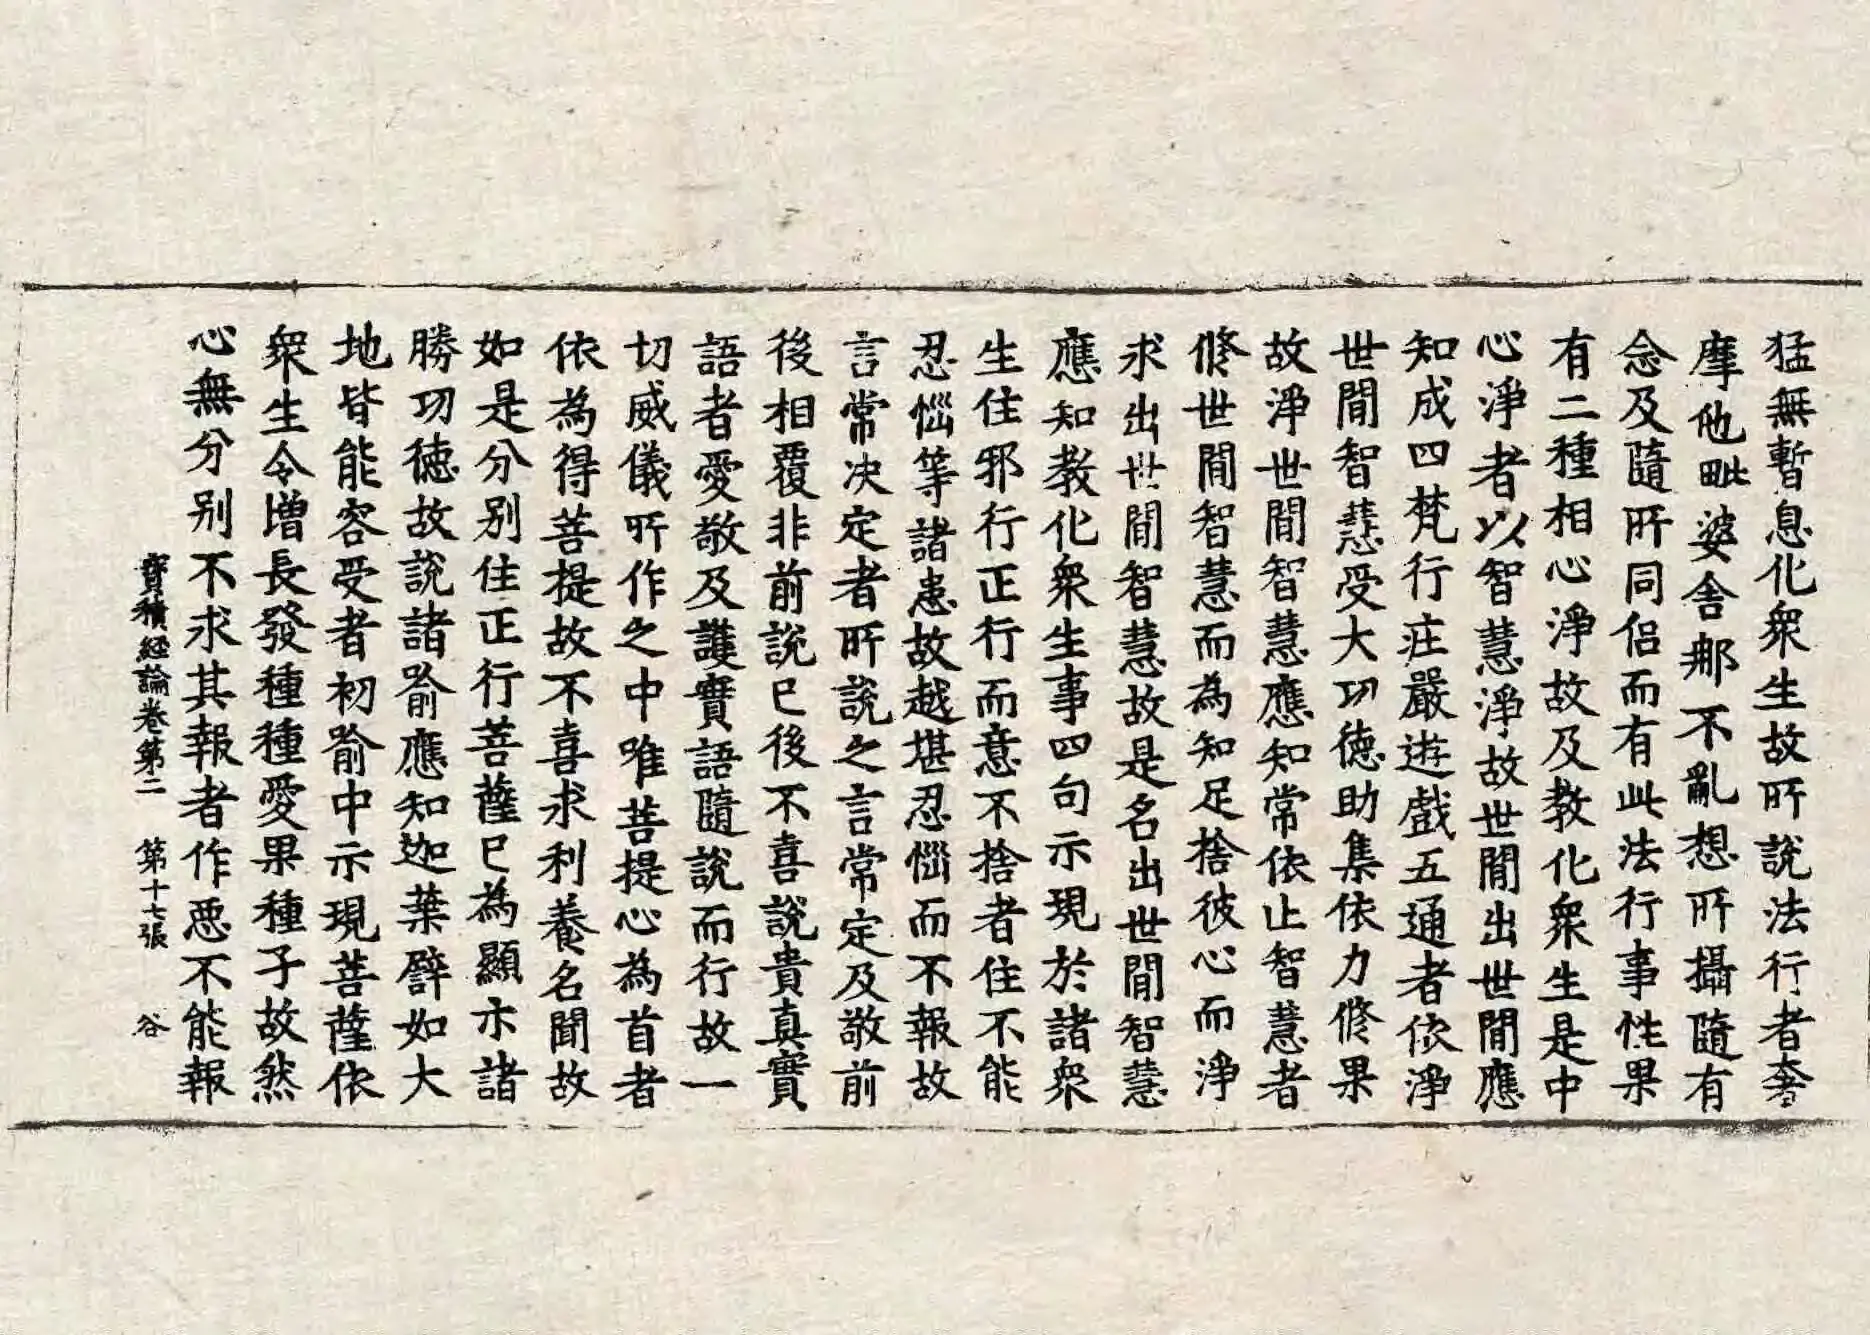 猛無暫息化衆生故所說法行者奢
摩他毗婆舍那不亂想所攝隨有
念及隨所同侶而有此法行事性果
有二種相心淨故及教化衆生是中
心淨者以智慧淨故世間出世間應
知成四梵行庄嚴遊戲五通者依淨
世間智慧受大功徳助集依力修果
故淨世間智慧應知常依止智慧者
修世間智慧而為知足捨彼心而淨
求出世間智慧故是名出世間智慧
應知教化衆生事四句示現於諸衆
生住邪行正行而意不捨者住不能
忍惱等諸患故越堪忍惱而不報故
言常决定者所說之言常定及敬前
後相覆非前說已後不喜說貴真實
語者愛敬及護實語隨說而行故一
切威儀所作之中唯菩提心為首者
依為得菩提故不喜求利養名聞故
如是分別住正行菩薩已為顯示諸
勝功徳故說諸喻應知迦葉譬如大
地皆能容受者初喻中示現菩薩依
衆生令增長發種種愛果種子故然
心無分别不求其報者作惡不能報
寶積經論卷第二 第十七張 谷